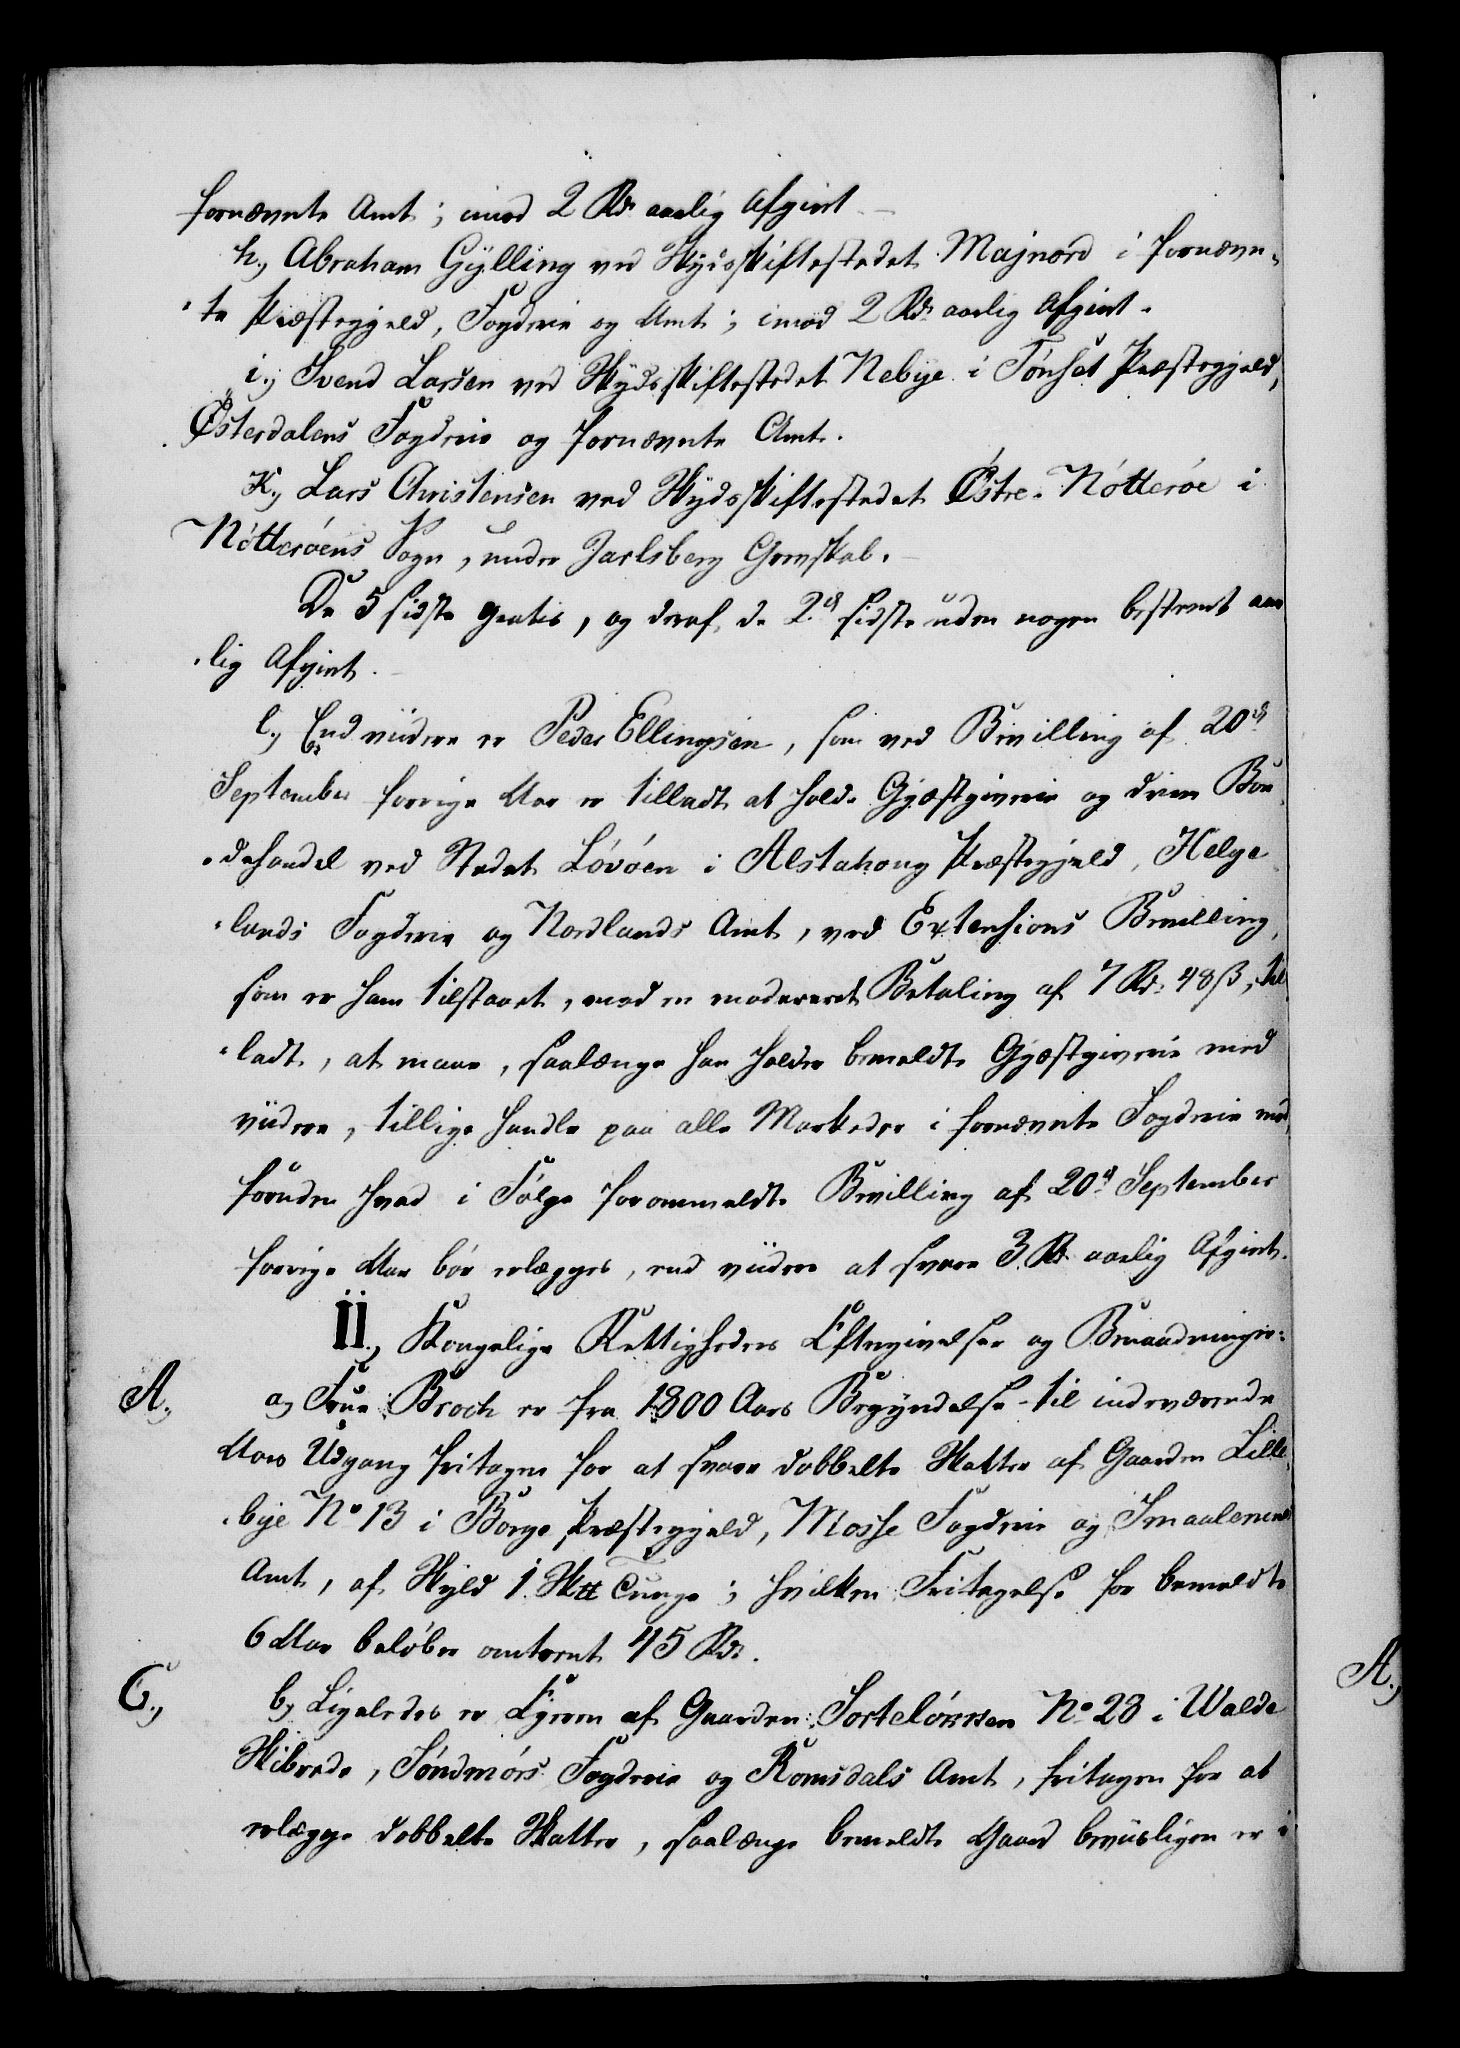 fornævnte Amt; imod 2 Rd. aarlig Afgivt.
h., Abraham Gÿlling ved Skydsskiftestedet Majnord i fornævn-
-te Præstegjeld, Fogderie og Amt; imod 2 Rd. aarlig Afgivt.
i., Svend Larsen ved Skÿdsskiftestedet Nebÿe i Tönset Præstegjeld,
Österdalens Fogderie og fornævnte Amt.
K., Lars Christensen ved Skÿdsskiftestedet Östre-Nötteröe i
Nötteröens Sogn, under Jarlsberg Grevskab.
De 5 sidste gratis, og deraf de 2de sidste uden nogen bestemt aar-
-lig Afgivt.
l., End viidere er Peder Ellingsen, som ved Bevilling af 20de
September forrige Aar er tilladt at holde Gjæstgiverie og drive Bon-
-dehandel ved Stedet Lövöen i Alstahoug Præstegjeld, Helge-
-lands Fogderie og Nordlands Amt, ved Extensions Bevilling,
som er ham tilstaaet, mod en modereret Betaling af 7 Rd. 48 ß, til-
-ladt, at maae, saalænge han holder bemeldte Gjæstgiverie med
viidere, tillige handle paa alle Markeder i fornævnte Fogderie mod,
foruden hvad i Fölge forommeldte Bevilling af 20de September
forrige Aar bör erlægges, end viidere at svare 3 Rd. aarlig Afgivt.
II., Kongelige Rettigheders Eftergivelser og Benaadninger:
A., a., Frue Broch er fra 1800 Aars Begÿndelse til indeværende
Aars Udgang fritagen for at svare dobbelte Skatter af Gaarden Lille-
-bÿe No 13 i Borge Præstegjeld, Mosse Fogderie og Smaalenenes
Amt, af Skÿld 1 Sktt Tunge; hvilken Fritagelse for bemeldte
6 Aar belöber omtrent 45 Rd.
C., b., Ligeledes er Ejeren af Gaarden Sortelökken No 23 i Walde
Skibrede, Söndmörs Fogderie og Romsdals Amt, fritagen for at
erlægge dobbelte Skatter, saalænge bemeldte Gaard beviisligen er i
A.,